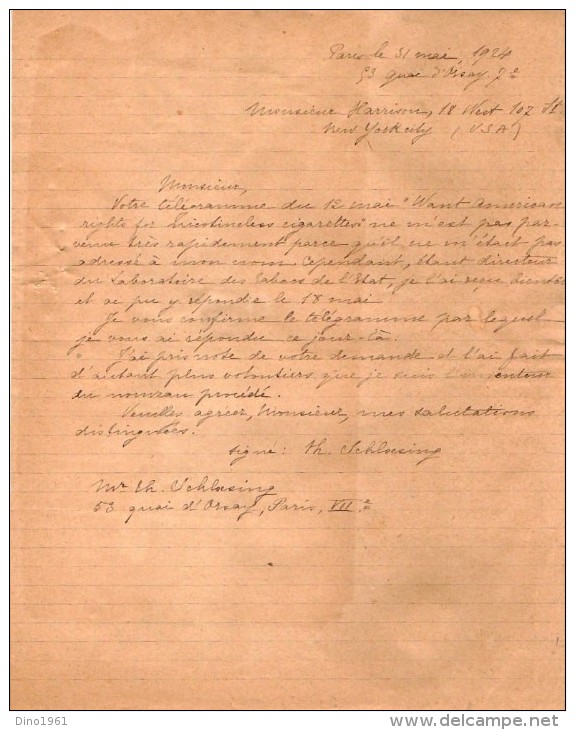 Paris le 31 mai, 1924
53 quai d'Orsay 7e
Monsieur Harrison, 18 West 107 St.
New York city (U.S.A)
Monsieur,
Votre télégramme du 12 mai "Want American
rights for nicotineless cigarettes" ne m'est pas par-
venu très rapidement parce qu'il ne m'était pas
adressé à mon nom. Cependant, étant directeur
du Laboratoire des Tabacs de l'Etat, je l'ai reçu bientôt
et ai pu y répondre le 18 mai
Je vous confirme le télégramme par lequel
je vous ai répondu ce jour-là.
" J'ai pris note de votre demande et l'ai fait
d'autant plus volontiers que je suis l'inventeur
du nouveau procédé.
Veuillez agréer, Monsieur, mes salutations
distinguées.
signé: Th. Schloesing
Mr Th. Schloesing
53 quai d'Orsay, Paris, VII e
Dino1961
delcampe.net